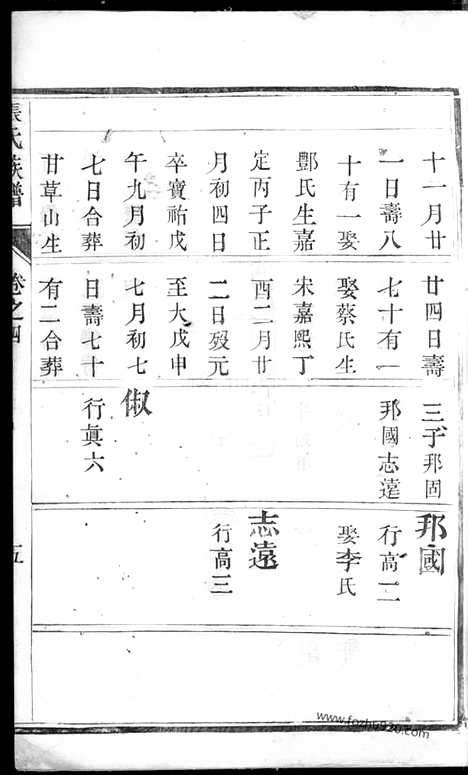 十一月廿
一日壽八
十有一娶
酆氏生嘉
定丙子正
月初四日
卒寶祐戊
午九月初
七日合葬
甘草山生
廿四日壽
七十有一
娶蔡氏生
宋嘉熙丁
酉二月廿
二日歿元
至大戊申
七月初七
日壽七十
有二合葬
三子邦固
邦國志遠
俶
行眞六
邦國
行高二
娶李氏
志遠
行高三
張氏族譜
卷之四
五
www.fozhu920.com